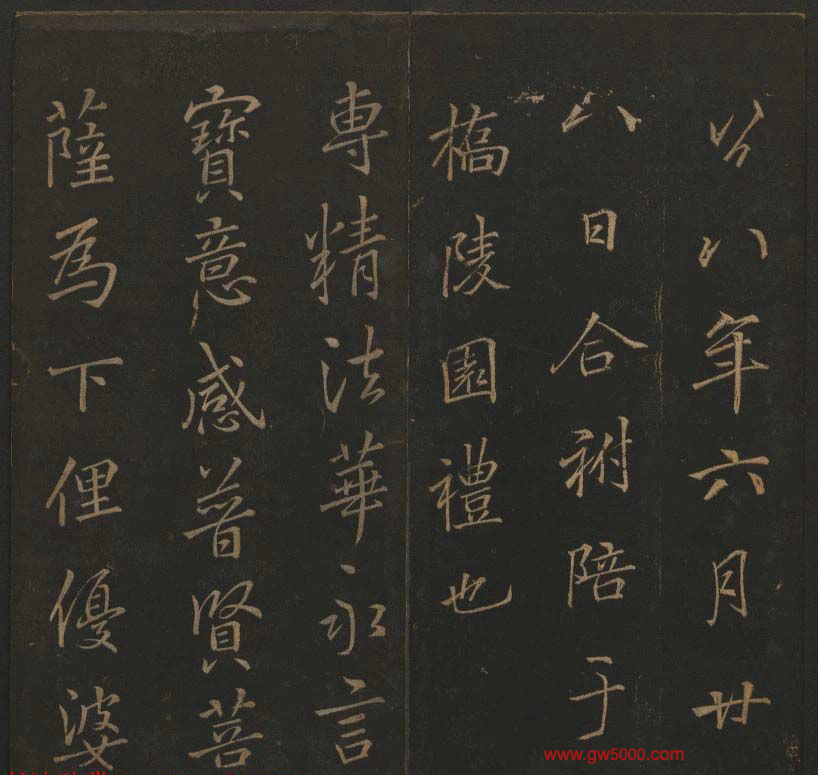 八年六月廿
八日合祔陪于
橋陵園禮也
專精法華永言
寶意感普賢菩
薩為下俚優婆
www.gw5000.com